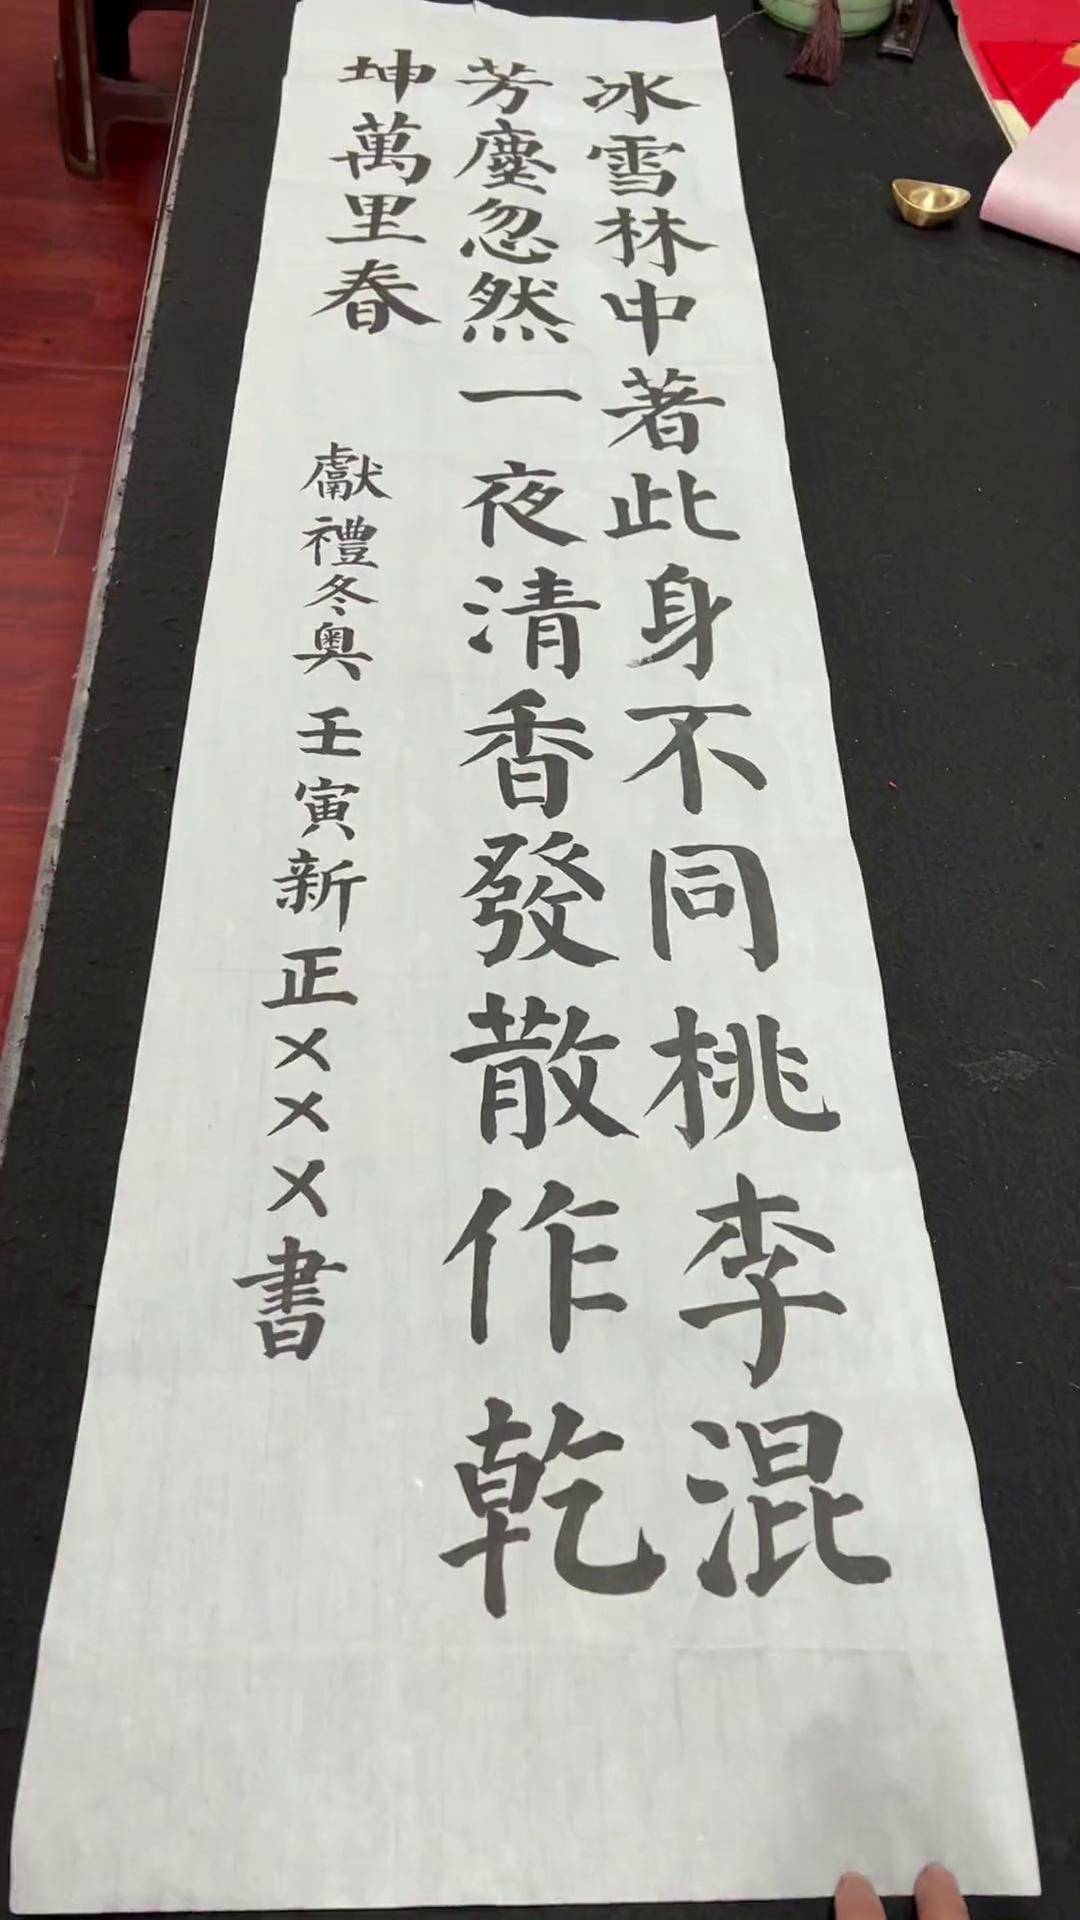 冰雪林中著此身不同桃李混
芳塵忽然一夜清香發散作乾
坤萬里春
獻禮冬奧 壬寅新正×××書